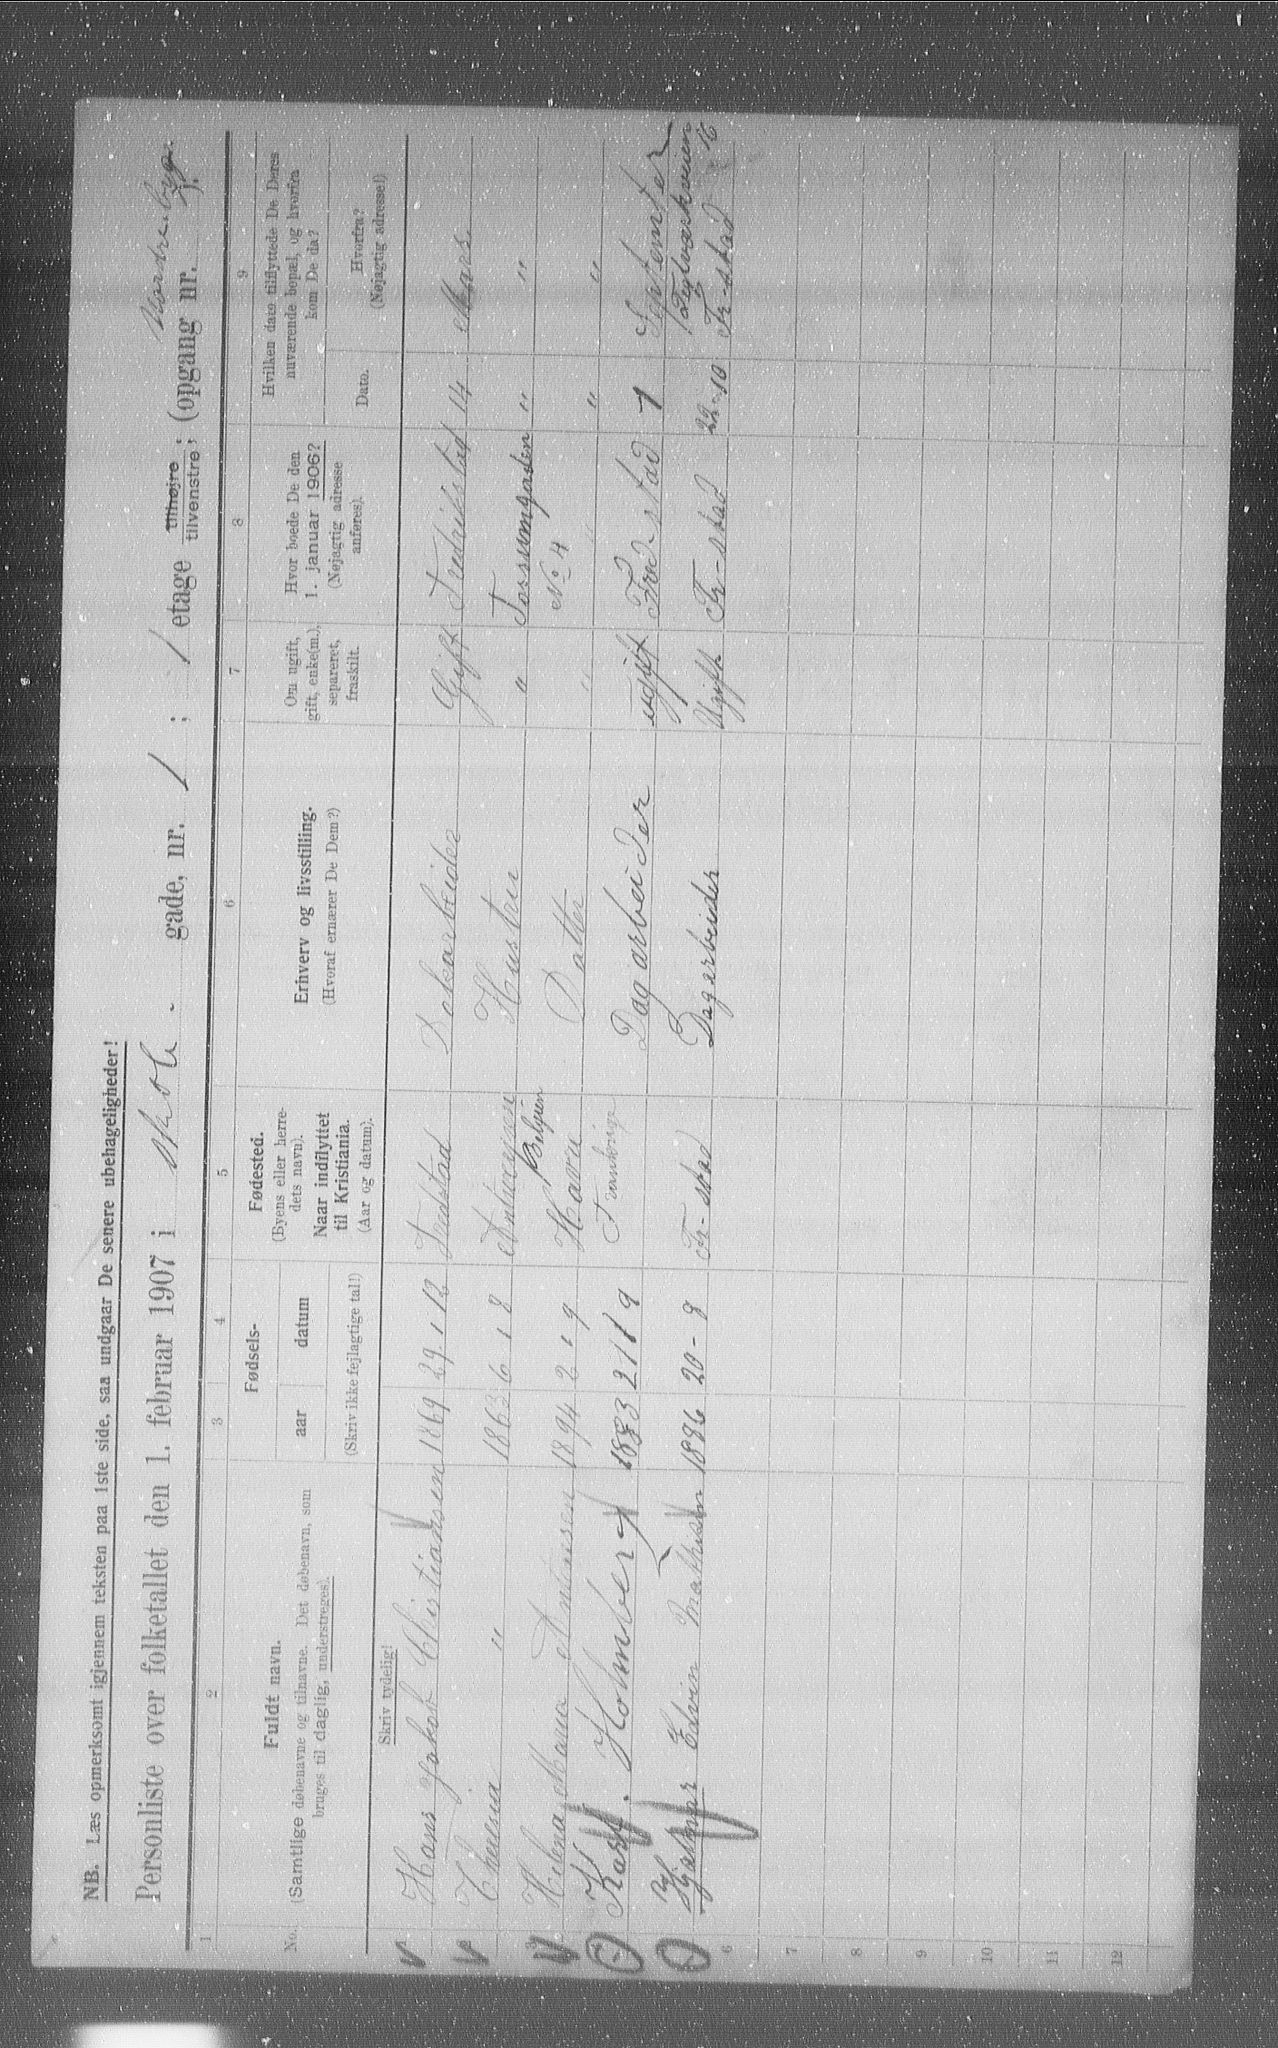 NB. Læs opmerksomt igjennem teksten paa 1ste side, saa undgaar De senere ubehageligheder!
Personliste over folketallet den 1. februar 1907 i Skole - gade, nr. 1 ; 1 etage tilhøjre tilvenstre ; (opgang nr. ).
1 2 3 4 5 6 7 8 9
No.
Fuldt navn.
(Samtlige døbenavne og tilnavne. Det døbenavn, som
bruges til daglig, understreges).
Skriv tydelig!
Fødsels-
aar datum
(Skriv ikke fejlagtige tal!)
Fødested.
(Byens eller herre-
dets navn).
Naar indflyttet
til Kristiania.
(Aar og datum).
Erhverv og livsstilling.
(Hvoraf ernærer De Dem?)
Om ugift,
gift, enke(m.),
separeret,
fraskilt.
Hvor boede De den
1. januar 1906?
(Nøjagtig adresse
anføres).
Hvilken dato tilflyttede De Deres
nuværende bopæl, og hvorfra
kom De da?
Dato.
Hvorfra?
(Nøjagtig adresse!)
Hans Jakob Christiansen 1869 29 12 Fredstad Gift Fredrikstad 14 Mars
Theresia " 1863 6 8 Hustru " Tossumgaden " "
Belgien
Helena Maria 1894 2 9 Havn Datter " No 4 " "
Karl. Holmberg 1883 21 9 Dagarbeider ugift Fredstad 1 September
Hjalmar Edvin Mathisen 1886 20-8 Fr-stad Dagarbeider Ugift Fr-stad 22-10 Fr-stad 16
6
7
8
9
10
11
12